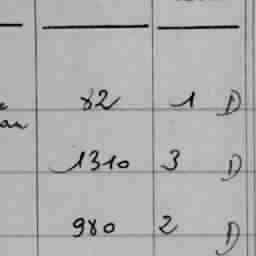 82 1 D
1310 3 D
980 2 D